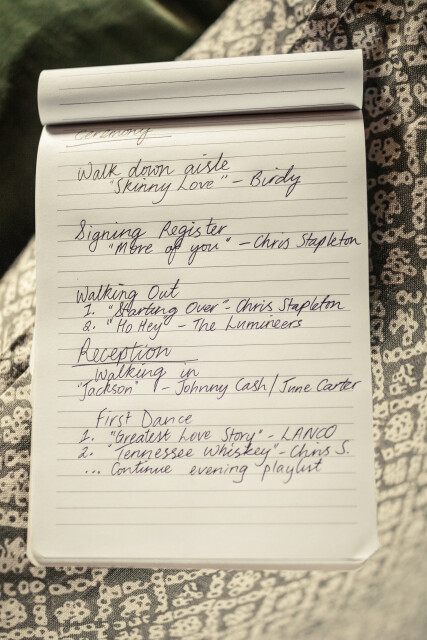 Ceremony
Walk down aisle
"Skinny Love" - Birdy
Signing Register
"More of you" - Chris Stapleton
Walking Out
1. "Starting Over" - Chris Stapleton
2. "Ho Hey" - The Lumineers
Reception
Walking in
"Jackson" - Johnny Cash/June Carter
First Dance
1. "Greatest Love Story" - LANCO
2. "Tennessee Whiskey" - Chris S.
... Continue evening playlist